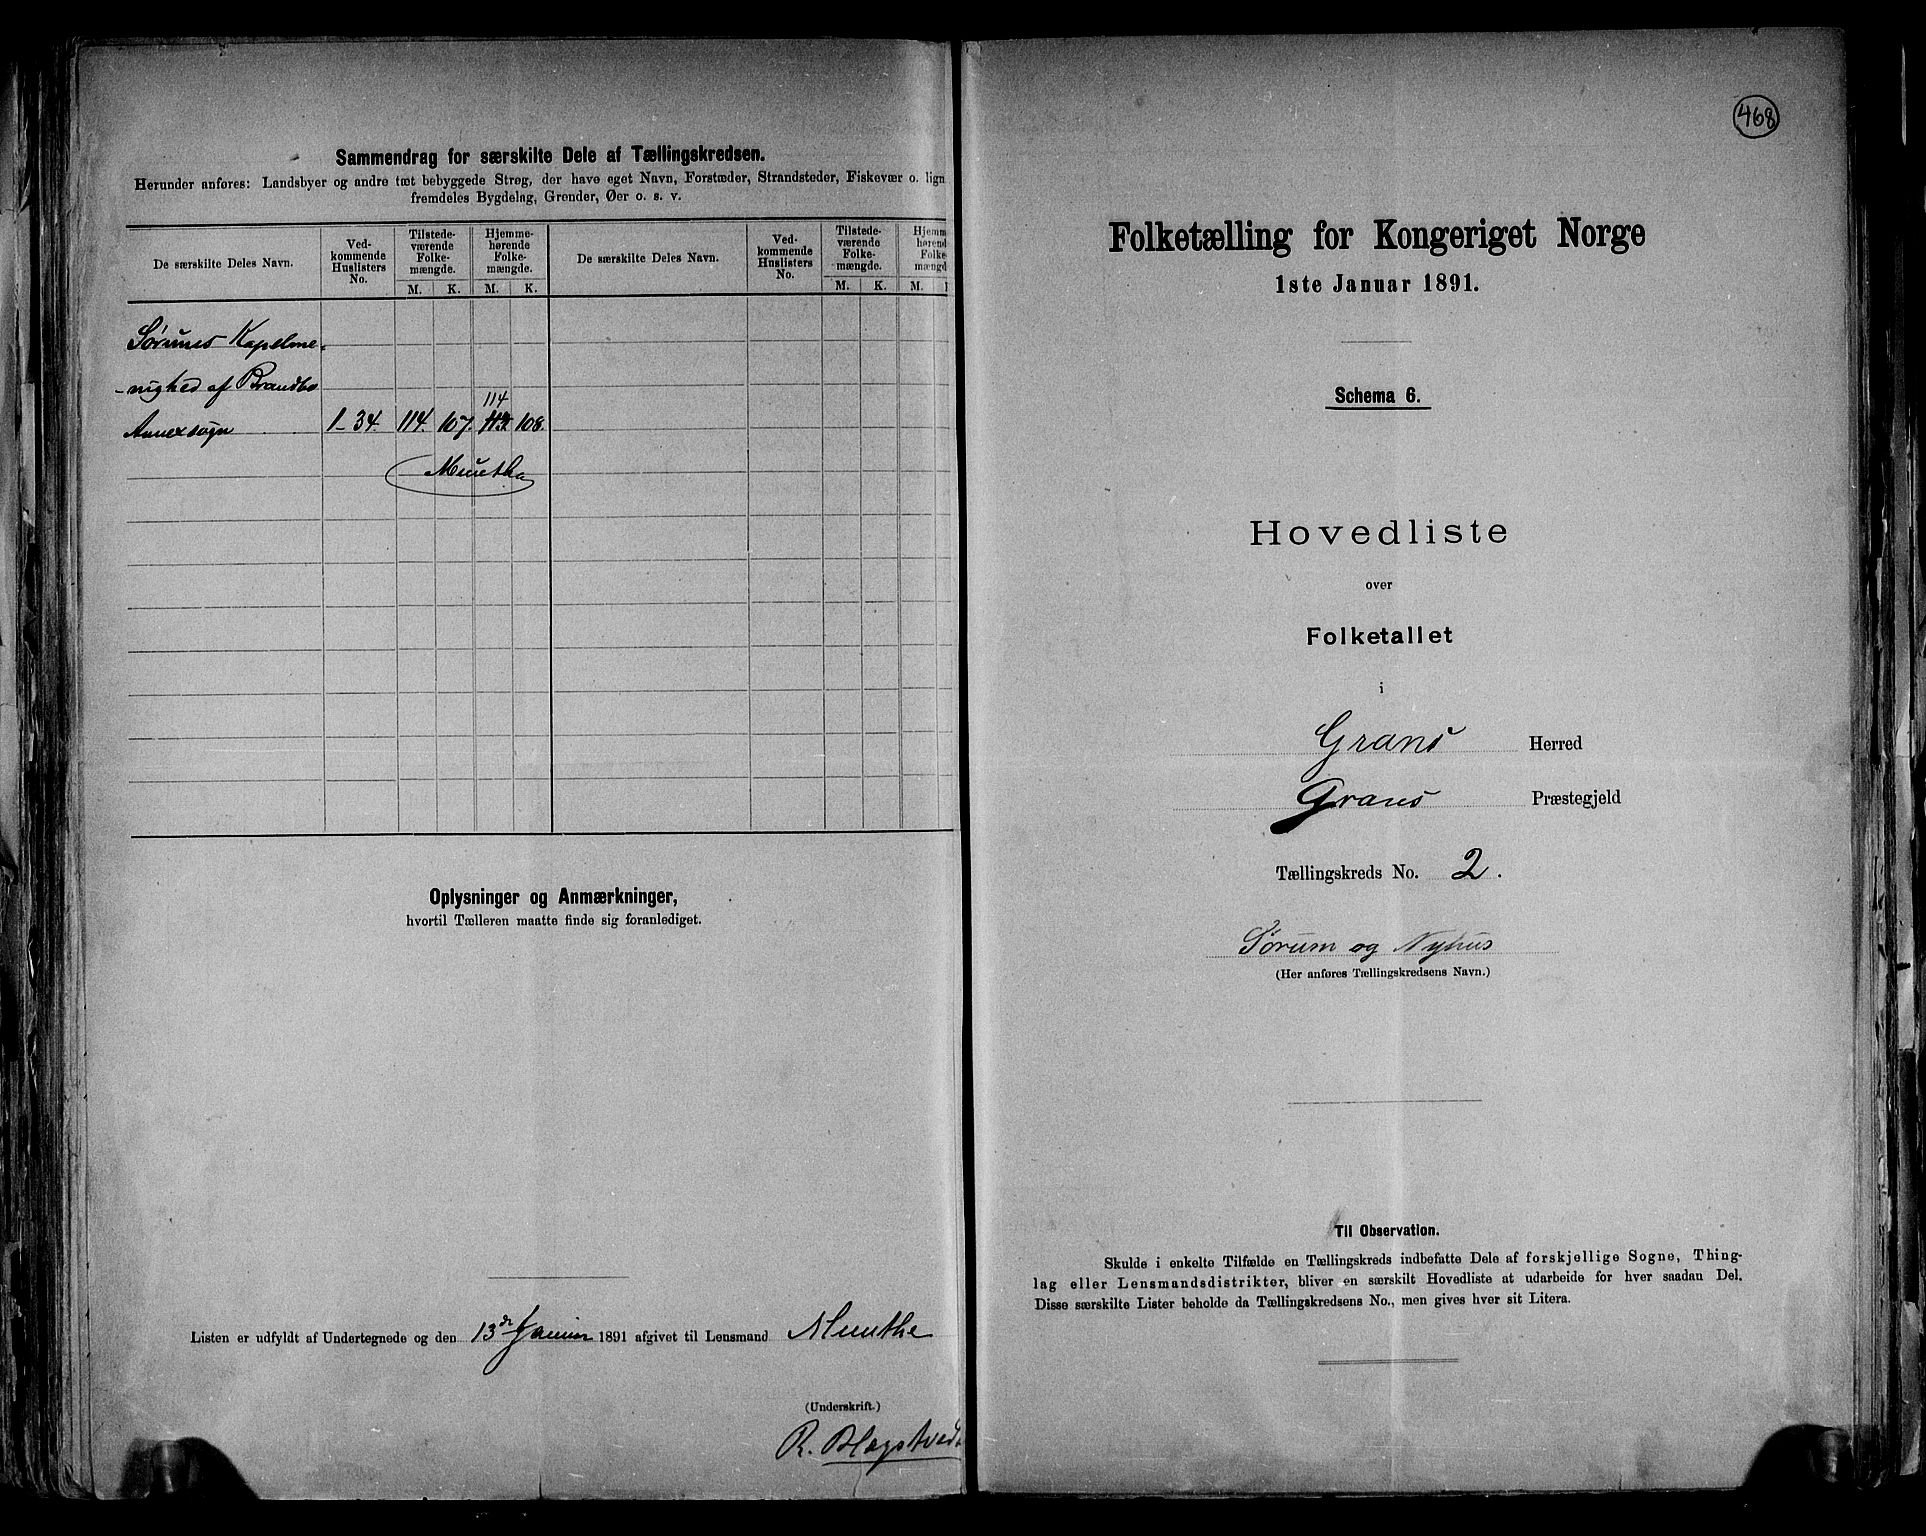 Sammendrag for særskilte Dele af Tællingskredsen.
Herunder anføres: Landsbyer og andre tæt bebyggede Strøg, der have eget Navn, Forstæder, Strandsteder, Fiskevær o. lign
fremdeles Bygdelag, Grender, Øer o. s. v.
De særskilte Deles Navn.
Ved-
kommende
Huslisters
No.
Tilstede-
værende
Folke-
mængde.
Hjemme-
hørende
Folke-
mængde.
De særskilte Deles Navn.
Ved-
kommende
Huslisters
No.
Tilstede-
værende
Folke-
mængde.
Hjemm
hørend
Folke-
mængd
M. K. M. K. M. K. M.
Sørums Kapelme-
-nighed af Brandbo
114
Annexsogn 1-34. 114. 107. 108.
Munthe
Oplysninger og Anmærkninger,
hvortil Tælleren maatte finde sig foranlediget.
Listen er udfyldt af Undertegnede og den 13de Januar 1891 afgivet til Lensmand Munthe
(Underskrift.)
R. Blegstvedt
468
Folketælling for Kongeriget Norge
1ste Januar 1891.
Schema 6.
Hovedliste
over
Folketallet
i
Grans Herred
Grans Præstegjeld
Tællingskreds No. 2.
Sørum og Nyhus
(Her anføres Tællingskredsens Navn.)
Til Observation.
Skulde i enkelte Tilfælde en Tællingskreds indbefatte Dele af forskjellige Sogne, Thing-
lag eller Lensmandsdistrikter, bliver en særskilt Hovedliste at udarbeide for hver saadan Del.
Disse særskilte Lister beholde da Tællingskredsens No., men gives hver sit Litera.